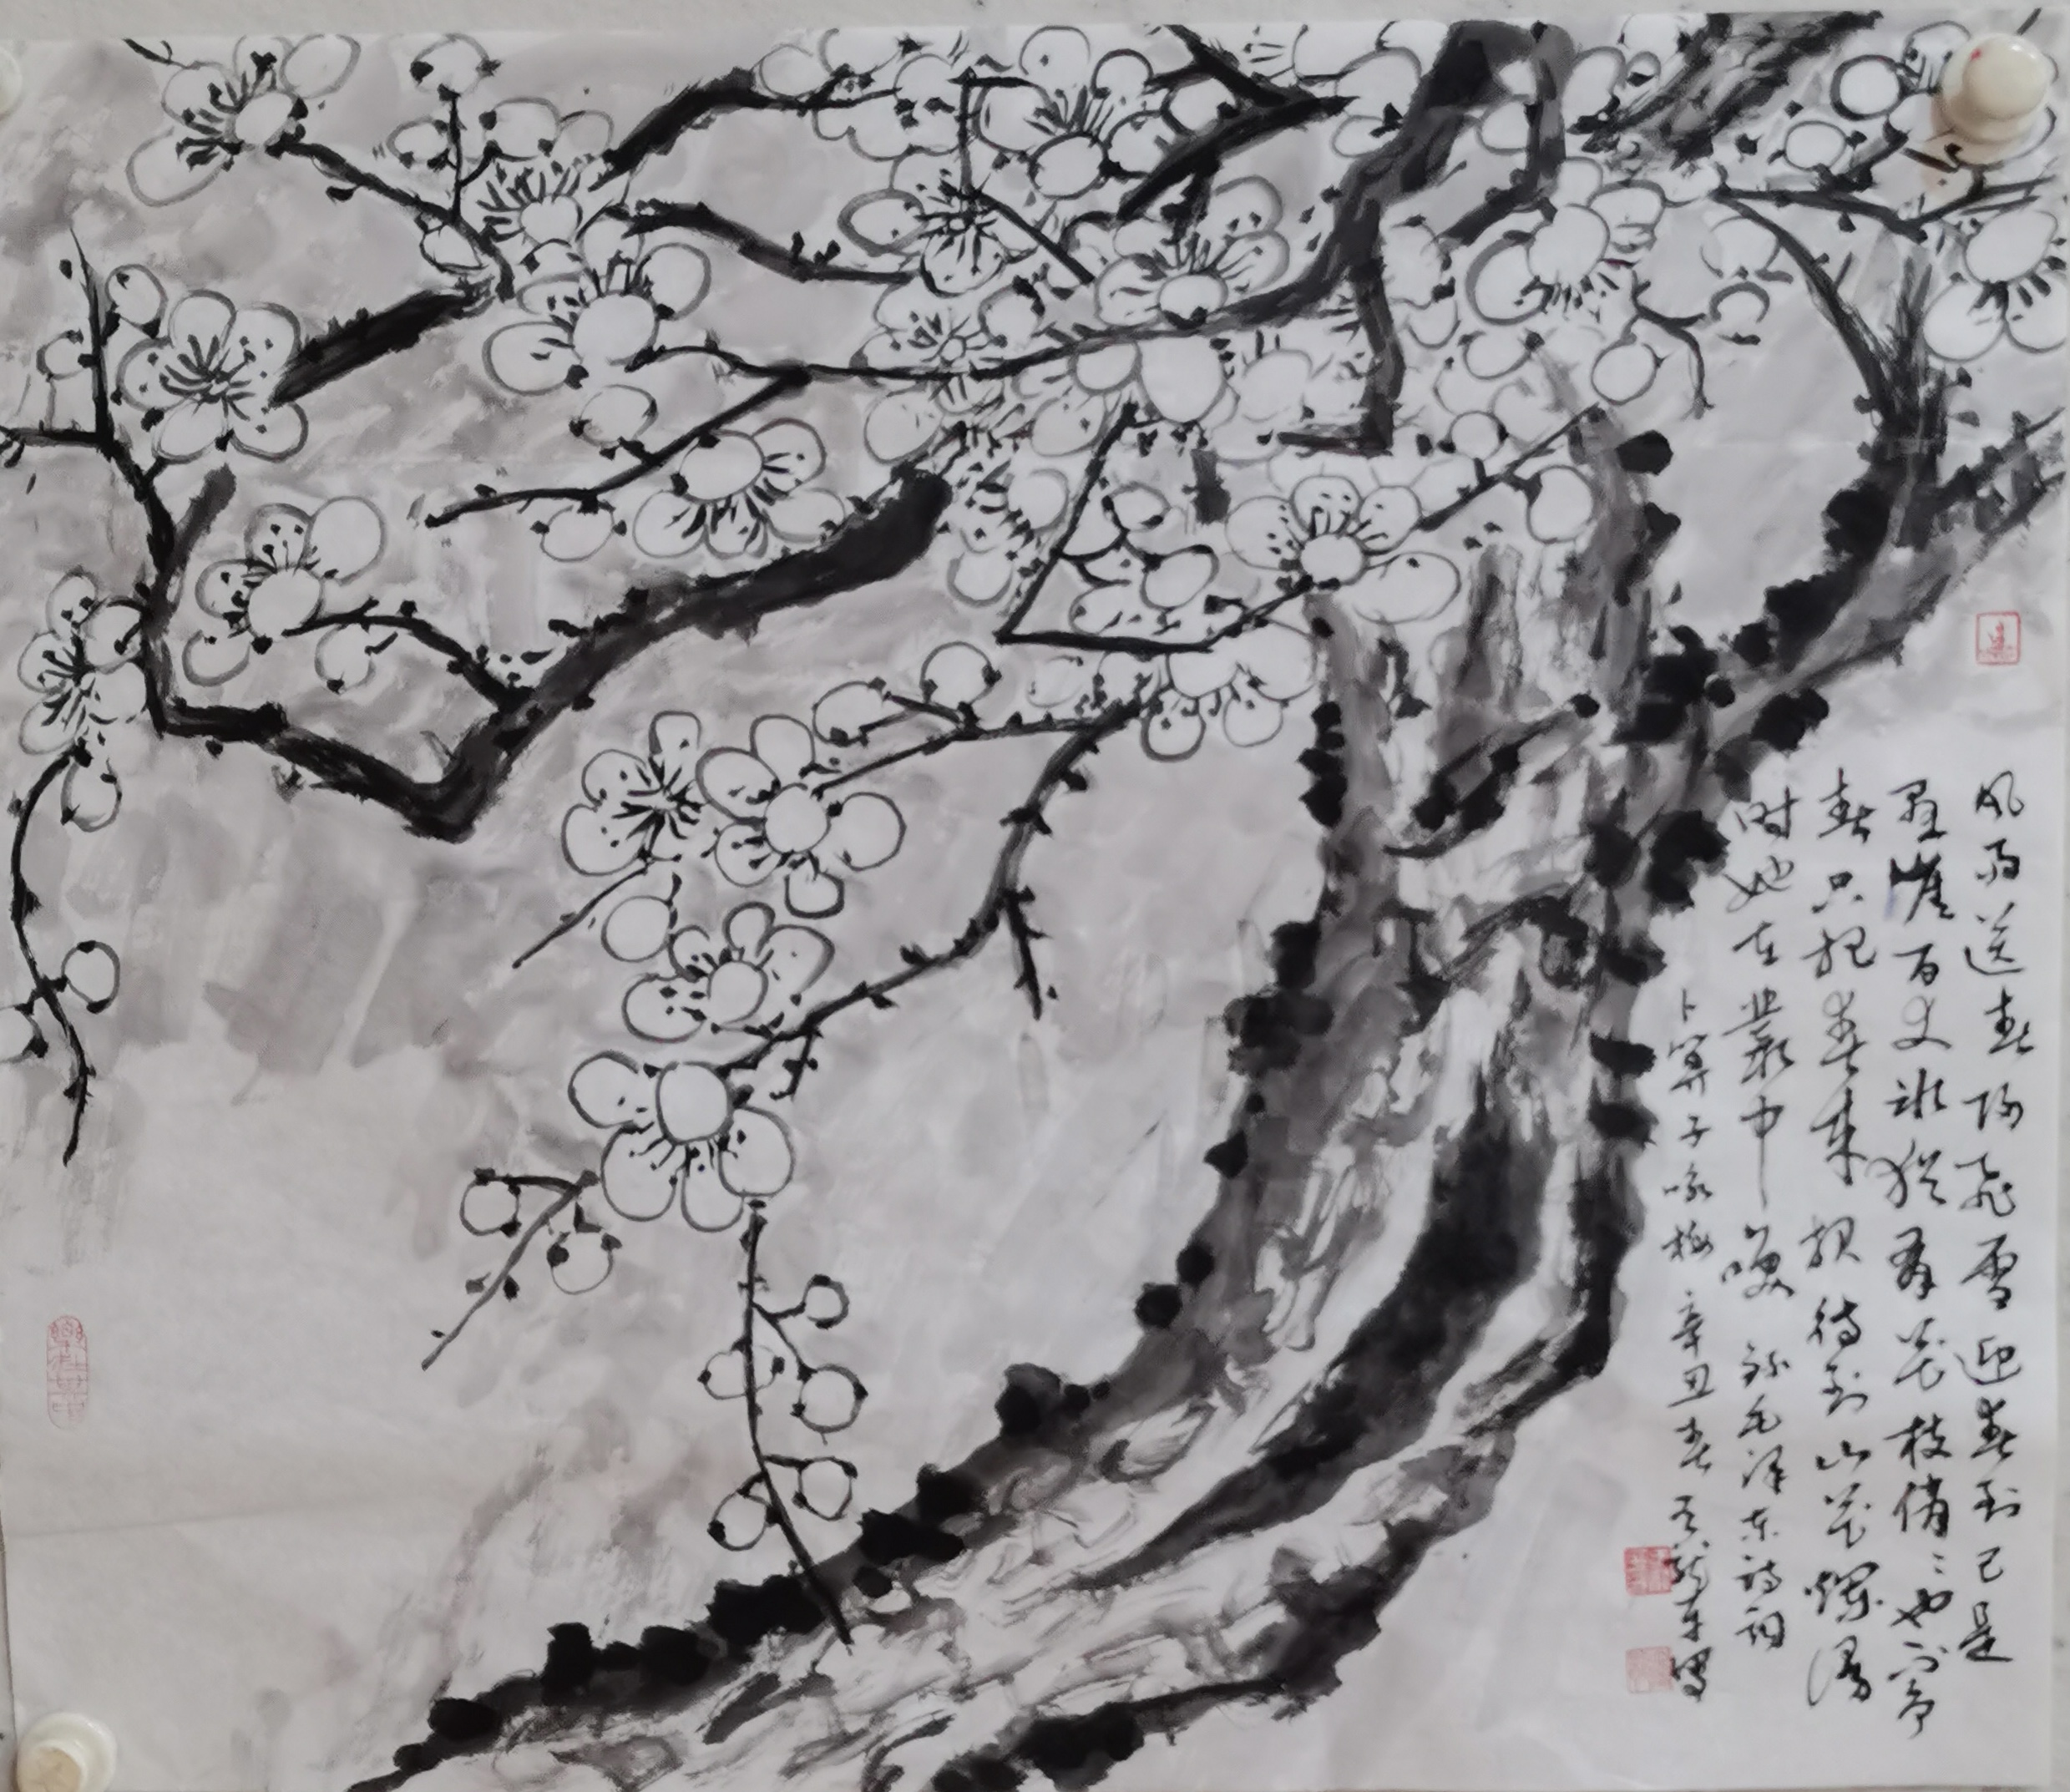 风雨送春归飞雪迎春到已是
悬崖百丈冰犹有花枝俏俏也不争
春只把春来报待到山花烂漫
时她在丛中笑 录毛泽东诗词
卜算子咏梅 辛丑春